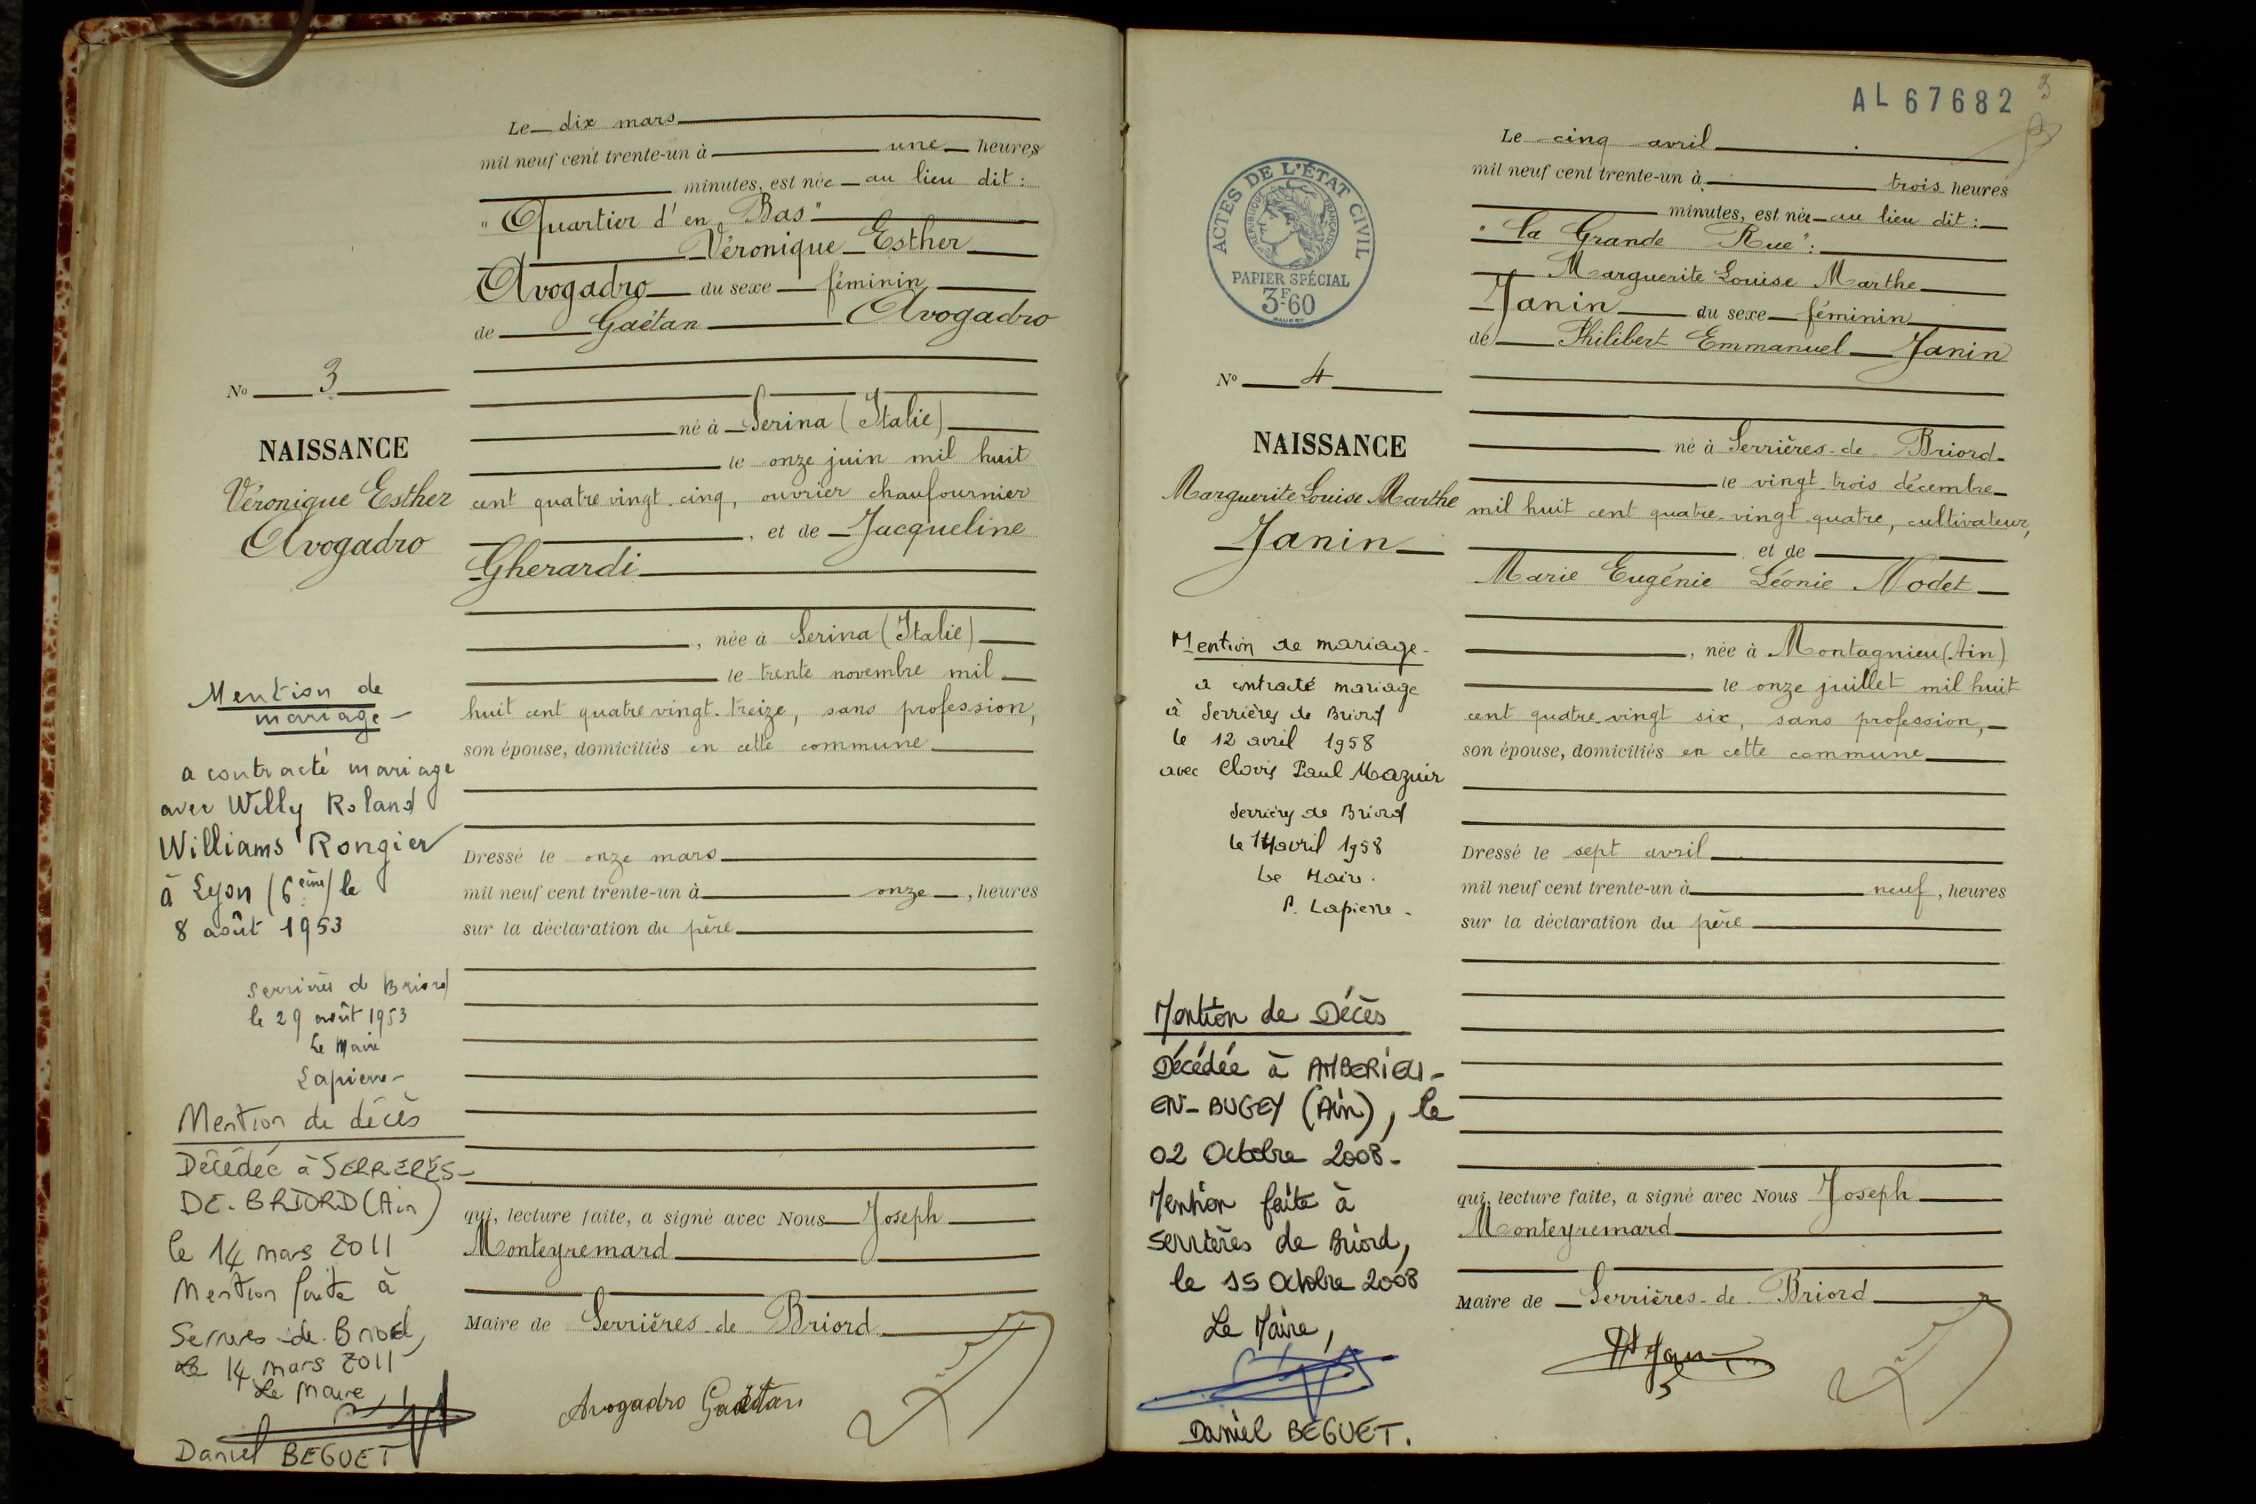 Le dix mars
mil neuf cent trente-un à une heures
minutes, est née au lieu dit :
"Quartier d'en Bas"
Véronique Esther
Avogadro du sexe féminin
de Gaëtan Avogadro
né à Serina (Italie)
le onze juin mil huit
cent quatre vingt-cinq, ouvrier chaufournier
, et de Jacqueline
Gherardi
, née à Serina (Italie)
le trente novembre mil
huit cent quatre vingt-treize, sans profession,
son épouse, domiciliés en cette commune
Dressé le onze mars
mil neuf cent trente-un à onze, heures
sur la déclaration du père
qui, lecture faite, a signé avec Nous Joseph
Monteyremard
Maire de Serrières-de-Briord
Avogadro Gaëtan
No 3
NAISSANCE
Véronique Esther
Avogadro
Mention de
mariage
a contracté mariage
avec Willy Roland
Williams Rongier
à Lyon (6ème) le
8 août 1953
Serrières de Briord
le 29 août 1953
Le Maire
Lapierre
Mention de décès
Décédée à SERRIERES-
DE-BRIORD (Ain)
le 14 mars 2011
Mention faite à
Serrières-de-Briord,
le 14 mars 2011
Le Maire
Daniel BEGUET
AL 67682
3
ACTES DE L'ÉTAT CIVIL
RÉPUBLIQUE FRANÇAISE
PAPIER SPÉCIAL
3F60
Le cinq avril
mil neuf cent trente-un à trois heures
minutes, est née au lieu dit :
"La Grande Rue" :
Marguerite Louise Marthe
Janin du sexe féminin
de Philibert Emmanuel Janin
né à Serrières-de-Briord
le vingt-trois décembre
mil huit cent quatre-vingt-quatre, cultivateur,
et de
Marie Eugénie Léonie Nodet
, née à Montagnieu (Ain)
le onze juillet mil huit
cent quatre-vingt six, sans profession,
son épouse, domiciliés en cette commune
Dressé le sept avril
mil neuf cent trente-un à neuf, heures
sur la déclaration du père
qui, lecture faite, a signé avec Nous Joseph
Monteyremard
Maire de Serrières-de-Briord
No 4
NAISSANCE
Marguerite Louise Marthe
Janin
Mention de mariage
a contracté mariage
à Serrières de Briord
le 12 avril 1958
avec Clovis Paul Mazuir
Serrières de Briord
le 14 avril 1958
Le Maire.
P. Lapierre.
Mention de Décès
Décédée à AMBERIEU-
EN-BUGEY (Ain), le
02 Octobre 2008-
Mention faite à
Serrières de Briord,
le 15 Octobre 2008
Le Maire,
Daniel BEGUET.